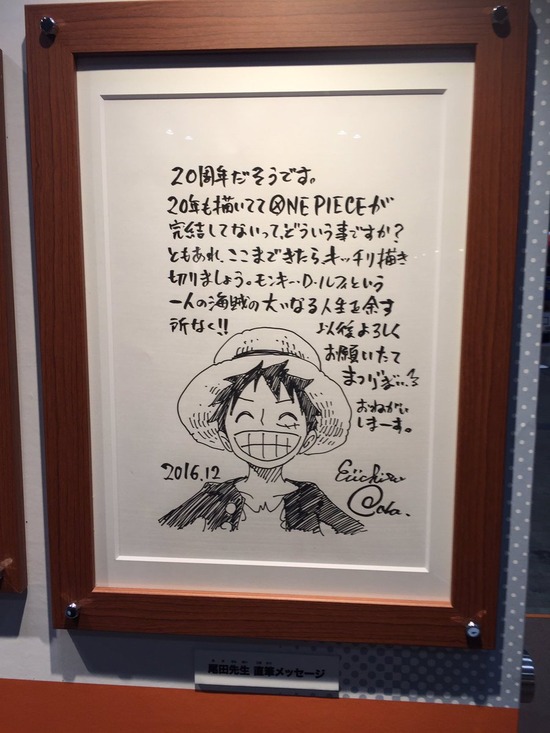 20周年だそうです。
20年も描いてて ONE PIECEが
完結してないって、どういう事ですか?
ともあれ、ここまできたら、キッチリ描き
切りましょう。モンキー・D・ルフィという
一人の海賊の大いなる人生を余す
所なく!!
以後よろしく
お願いたて
まつりまい
おねがい
しまーす。
2016.12
Eiichiro
Oda.
尾田先生 直筆メッセージ